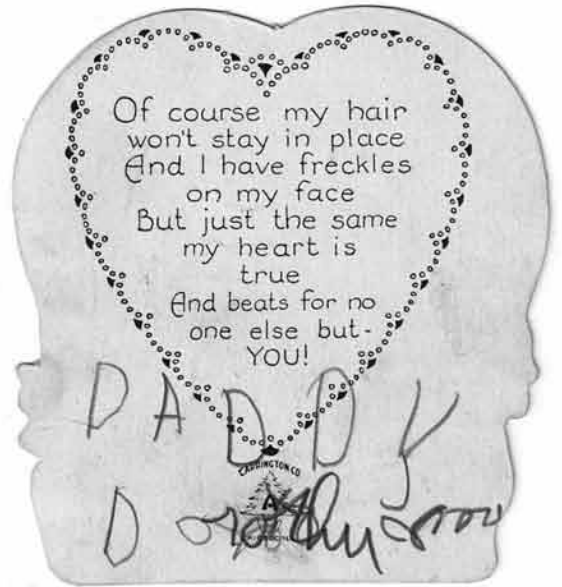 Of course my hair
won't stay in place
And I have freckles
on my face
But just the same
my heart is
true
And beats for no
one else but-
YOU!
DADDY
CARRINGTON CO.
A
Dorothy